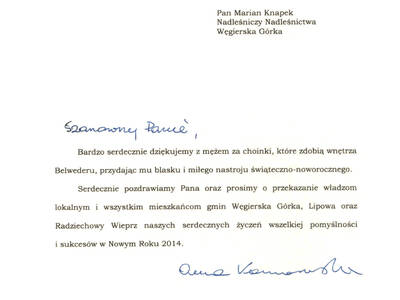 Pan Marian Knapek
Nadleśniczy Nadleśnictwa
Węgierska Górka
Szanowny Panie,
Bardzo serdecznie dziękujemy z mężem za choinki, które zdobią wnętrza
Belwederu, przydając mu blasku i miłego nastroju świąteczno-noworocznego.
Serdecznie pozdrawiamy Pana oraz prosimy o przekazanie władzom
lokalnym i wszystkim mieszkańcom gmin Węgierska Górka, Lipowa oraz
Radziechowy Wieprz naszych serdecznych życzeń wszelkiej pomyślności
i sukcesów w Nowym Roku 2014.
Anna Komorowska